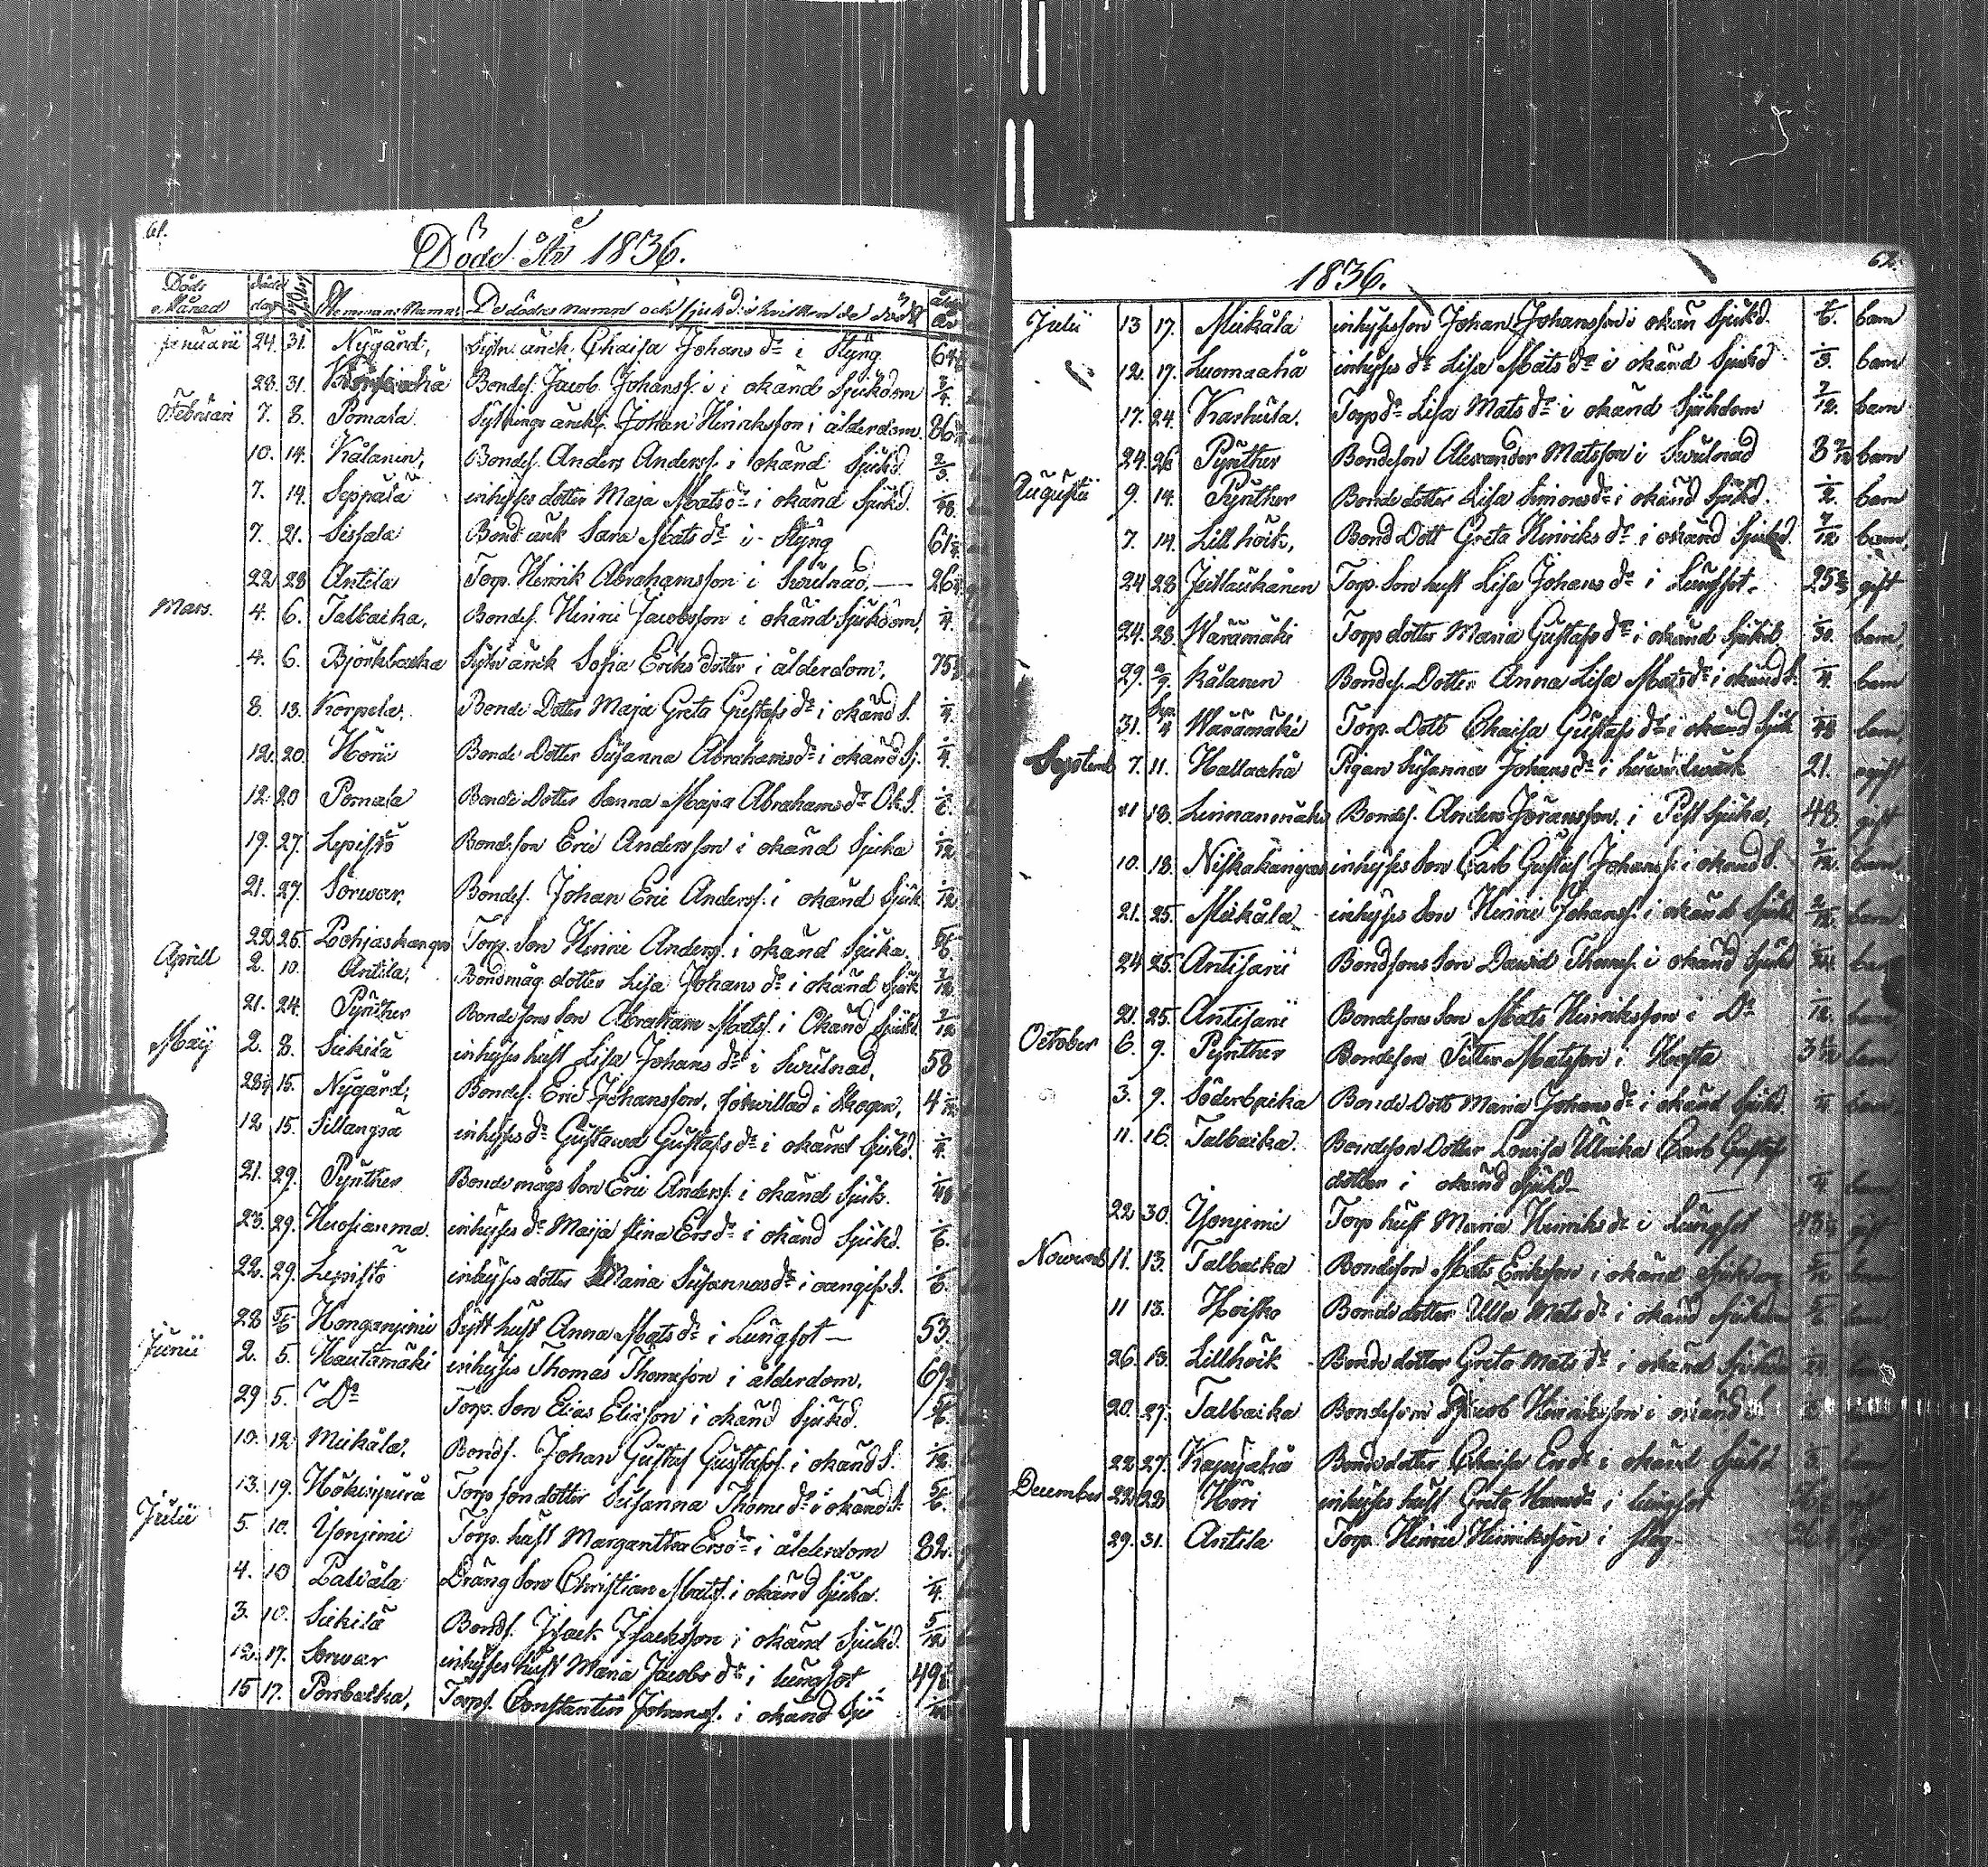 61.
Döde År 1836.
Döds Månad döds dag Hemmans Namn De dödas namn och sjukd: i hvilken de dödt ålder År
Januarii 24. 31. Nÿgård, Sÿtn. änck. Chaisa Johans dr i Stÿng
28. 31. Bondes. Jacob Johanss. i okänd Sjukdom 3/4.
Februari 7. 8. Pomala. Sÿtnings änckl. Johan Hinriksson i ålderdom. 86
10. 14. Kålanin, Bondes. Anders Anderss. i okänd Sjukd. 2/3.
7. 14. Seppälä inhyses dotter Maja Mats dr i okänd Sjukd. 1/48.
7. 21. Sissala Bond änk Sara Mats dr i Stÿng 61
22 28 Antila Torp. Henrik Abrahamsson i Swulnad, 26
Mars. 4. 6. Talbacka, Bondes. Hinric Jacobsson i okänd Sjukdom, 1/4.
4. 6. Björkbacka Sÿtn änck Sofia Eriks dotter i ålderdom, 75
8. 13. Korpela. Bonde Dotter Maja Greta Gustafs dr i okänd S. 1/4.
12. 20. Höri Bonde Dotter Susanna Abrahams dr i okänd Sj. 1/4.
12. 20 Pomala Bonde Dotter Sanna Maja Abrahams dr Ok. S. 1/6.
19. 27. Lepistö Bondeson Eric Andersson i okänd Sjuka 1/12
21. 27. Sorwar. Bondes. Johan Eric Anderss. i okänd Sjuk. 1/12
22 25. Pohjaskangas Torp. Son Hinric Anderss. i okänd Sjuka. 5/6.
Aprill 2. 10. Antila, Bondmåg dotter Lisa Johans dr i okänd Sjuk 7/12
21. 24. Pÿnther Bondesons Son Abraham Matss. i Okänd Sjukd. 7/12
Maÿ 2. 8. Siikilä inhyses hust Lisa Johans dr i Swulnad, 58
28/4 15. Nÿgård, Bondes. Eric Johansson, förvillad i Skogen, 4
12 15. Sillanpä inhyses dr Gustawa Gustafs dr i okänd Sjukd. 1/4.
21. 29. Pÿnther Bonde mågs Son Eric Anderss. i okänd Sjuk. 1/48
23. 29. Huosianma. inhyses dr Maja Stina Ers dr i okänd Sjukd. 1/6.
22. 29. Lepistö inhyses dotter Maria Susannas dr i oangifs S. 1/6.
28 5/6 Honganjemi Sÿtt hust Anna Mats dr i Lungsot — 53.
Junii 2. 5. Hautamäki inhyses Thomas Thomsson i ålderdom, 69
29 5. Do Torp. Son Elias Elisson i okänd Sjukd.
10. 12 Mickåla, Bonds. Johan Gustaf Gustafss. i okänd S. 1/12
13. 19. Torp son dotter Susanna Thome dr i okänd S. 5/6.
Julii 5. 10. Ÿonjemi Torp. hust Margaretha Ers dr i ålderdom 82
4. 10 Palwala Dräng Son Christian Matss. i okänd Sjuka. 1/4.
3. 10. Siikilä Bonds. Isack Isacksson i okänd Sjukd. 5/12
12. 17. Sorwar inhyses hust Maria Jacobs dr i lungsot 49
15 17. Pombacka, Torps. Constantin Johanss. i okänd Sju
62.
1836.
Julii 13 17. Mickåla inhyseson Johan Johansson i okän Sjukd. 1/6. barn
12. 17. Luomaaho inhyses dr Lisa Mats dr i okänd Sjukd 1/3. barn
17. 24. Karhula. Torp dr Lisa Mats dr i okänd Sjukdom 7/12. barn
24. 26 Pÿnther Bondeson Alexander Matsson i Swulnad 3 barn
Augustii 9. 14. Pÿnther Bonde dotter Lisa Simons dr i okänd Sjukd. 1/2. barn
7. 14. Lillhöik, Bond Dott Greta Hinriks dr i okänd Sjukd. 7/12 barn,
24 28 Juslaukanen Torp. Son hust Lisa Johans dr i Lungsot. 25 gift
24. 28. Waramäki Torp dotter Maria Gustafs dr i okänd Sjukd, 1/30. barn,
29. 2/9 Kålanen Bondes. Dotter Anna Lisa Mats dr i okänd S. 1/4. barn
31. Sep. 4 Waramäki Torp. Dott Chaisa Gustafs dr i okänd Sjuk 1/48 barn,
Septemb 7. 11. Hallaaho Pigan Susanna Johans dr i hufvudwärk 21. ogift
11 18. Linnanmäki Bondes. Anders Jöransson i Pest Sjuka, 48. gift
10. 18. Niskakangas inhyses Son Carl Gustaf Johanss. i okänd S. 7/12. barn,
21. 25. Mickåla inhyses Son Hinric Johanss. i okänd Sjukd 2/12. barn
24 25. Antisarii Bondsons Son Dawid Thomss. i okänd Sjukd 1/24. barn
21. 25. Antisarii Bondesons Son Mats Hinriksson i Do 1/12. barn
October 6. 9. Pÿnther Bondeson Petter Matsson i Hosta 3 barn
3. 9. Söderbacka Bonde Dott Maria Johans dr i okänd Sjukd. 1/4. barn,
11. 16. Talbacka. Bondeson Dotter Lovisa Ulrika Carl Gustafs
dotter i okänd Sjukd — 1/4 barn
22 30. Ÿonjemi Torp hust Maria Hinriks dr i Lungsot gift
Novemb 11. 13. Talbacka Bondeson Mats Eriksson i okänd Sjukdom barn
11 13. Hoisko Bonde dotter Ulla Mats dr i okänd Sjukdom barn
26. 13. Lillhöik Bonde dotter Greta Mats dr i okänd Sjukdom
20. 27. Talbacka Bondeson Jacob Henriksson i okänd S.
22 27. Bonde dotter Chaisa Ers dr i okänd Sjukd barn
December 22 28 Höri inhyses hust Greta dr i lungsot gift
29. 31. Antila Torp. Hinric Hinriksson i Steg